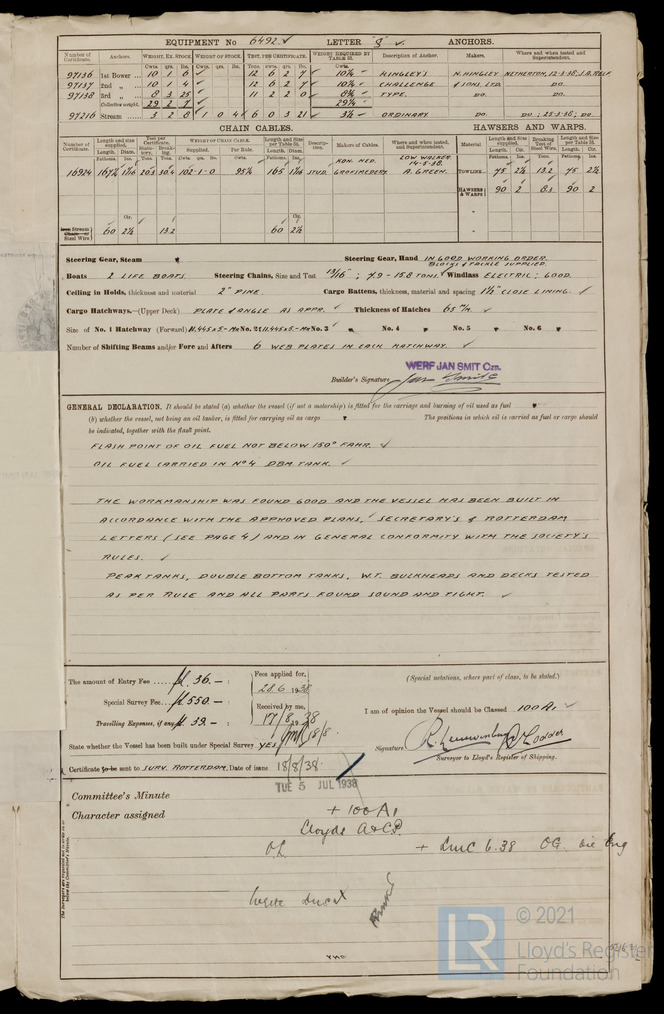 EQUIPMENT No 6492 LETTER ANCHORS.
Number of Certificate. Anchors. WEIGHT, EX. STOCK. WEIGHT OF STOCK. TEST, PER CERTIFICATE. WEIGHT REQUIRED BY TABLE 53. Description of Anchor. Makers. Where and when tested and Superintendent.
Cwts. qrs. lbs. Cwts. qrs. lbs. Tons. Cwts. qrs. lbs. Cwts.
97136 1st Bower 10 1 6 12 6 2 7 10¼ HINGLEY'S N. HINGLEY NETHERTON, 12-3-38, J.A. RELF
97137 2nd „ 10 1 4 12 6 2 7 10¼ CHALLENGE & SONS, LTD DO.
97138 3rd „ 8 3 25 11 2 2 0 8¾ TYPE. DO. DO.
Collective weight. 29 2 7 29¼
97216 Stream 3 2 8 1 0 4 6 0 3 21 3½ ORDINARY DO. DO; 25-3-38; DO.
CHAIN CABLES. HAWSERS AND WARPS.
Number of Certificate. Length and size supplied. Test per Certificate. WEIGHT OF CHAIN CABLE. Length and size per Table 53. Description. Makers of Cables. Where and when tested, and Superintendent. Material Length and size supplied. Breaking Test of Steel Wire. Length and size per Table 53.
Length. Diam. Statutory. Breaking. Supplied. Per Rule. Length. Diam. Length. Cir. Length. Cir.
Fathoms. Ins. Tons. Tons. Cwts. qrs. lbs. Cwts. Fathoms. Ins. KON. NED. LOW WALKER. 14-5-38. Fathoms. Ins. Tons. Fathoms. Ins.
16924 167½ 1 1/16 20.3 30.4 102-1-0 95¼ 165 1 1/16 STUD. GROFSMEDERY A. GREEN. TOWLINE 75 2½ 13.2 75 2½
HAWSERS & WARPS 90 2 8.3 90 2
Cir. Cir.
Iron Stream Chain or Steel Wire 60 2½ 13.2 60 2½
Steering Gear, Steam Steering Gear, Hand IN GOOD WORKING ORDER. BLOCKS & TACKLE SUPPLIED.
Boats 2 LIFE BOATS. Steering Chains, Size and Test 13/16"; 7.9 - 15.8 TONS. Windlass ELECTRIC; GOOD.
Ceiling in Holds, thickness and material 2" PINE. Cargo Battens, thickness, material and spacing 1½" CLOSE LINING.
Cargo Hatchways.—(Upper Deck) PLATE & ANGLE AS APPR. Thickness of Hatches 65 m/m.
Size of No. 1 Hatchway (Forward) No. 3 No. 4 No. 5 No. 6
Number of Shifting Beams and/or Fore and Afters 6 WEB PLATES IN EACH HATCHWAY.
WERF JAN SMIT Czn.
Builder's Signature Jan Smit Cz
GENERAL DECLARATION. It should be stated (a) whether the vessel (if not a motorship) is fitted for the carriage and burning of oil used as fuel
(b) whether the vessel, not being an oil tanker, is fitted for carrying oil as cargo The positions in which oil is carried as fuel or cargo should
be indicated, together with the flash point.
FLASH POINT OF OIL FUEL NOT BELOW 150° FAHR.
OIL FUEL CARRIED IN No 4 DBM TANK.
THE WORKMANSHIP WAS FOUND GOOD AND THE VESSEL HAS BEEN BUILT IN
ACCORDANCE WITH THE APPROVED PLANS, SECRETARY'S & ROTTERDAM
LETTERS (SEE PAGE 4) AND IN GENERAL CONFORMITY WITH THE SOCIETY'S
RULES.
PEAK TANKS, DOUBLE BOTTOM TANKS, W.T. BULKHEADS AND DECKS TESTED
AS PER RULE AND ALL PARTS FOUND SOUND AND TIGHT.
The amount of Entry Fee fl. 36. - : Fees applied for, 28.6 1938 (Special notations, where part of class, to be stated.)
Special Survey Fee fl. 550. - : Received by me, 17/8 1938 I am of opinion the Vessel should be Classed 100 A1.
Travelling Expenses, if any fl. 39. - : 18/8
State whether the Vessel has been built under Special Survey YES Signature
Surveyor to Lloyd's Register of Shipping.
Certificate to be sent to SURV. ROTTERDAM. Date of issue 18/8/38
TUE 5 JUL 1938
Committee's Minute
Character assigned + 100 A1
Lloyds A&CP.
OL + LMC 6.38 OG. oil Eng
Write Dusat
YHO
© 2021
LR Lloyd's Register
Foundation